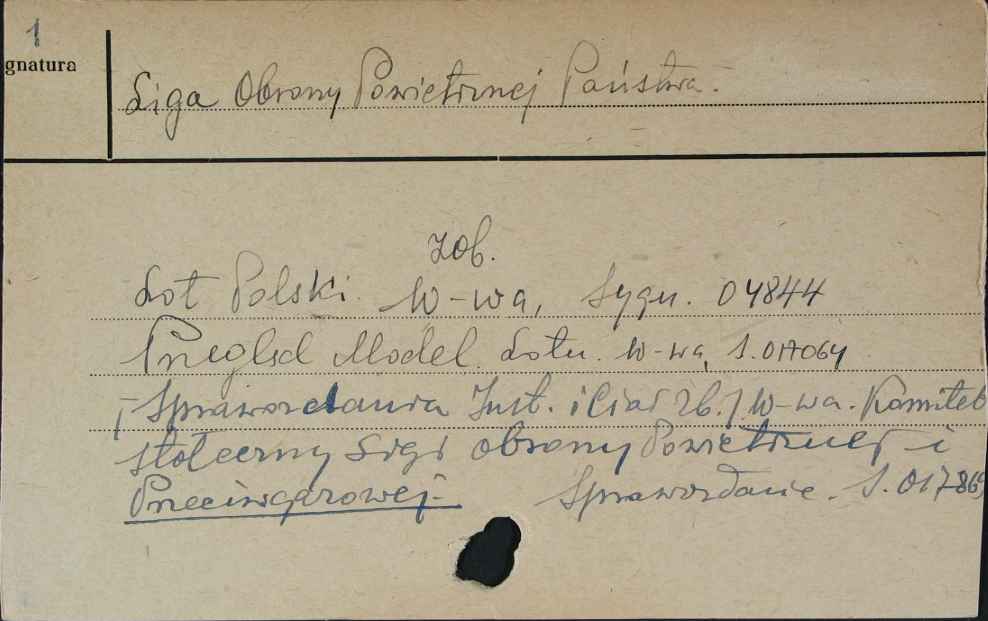 1
gnatura
Liga Obrony Powietrznej Państwa.
zob.
Lot Polski. W-wa, Sygn. 04844
Przegląd Model. Lotn. W-wa, S. 017064
[Sprawozdania Inst. i Ciał Zb.] W-wa. Komitet
stołeczny Ligi Obrony Powietrznej i
Przeciwgazowej. Sprawozdanie. S. 017869